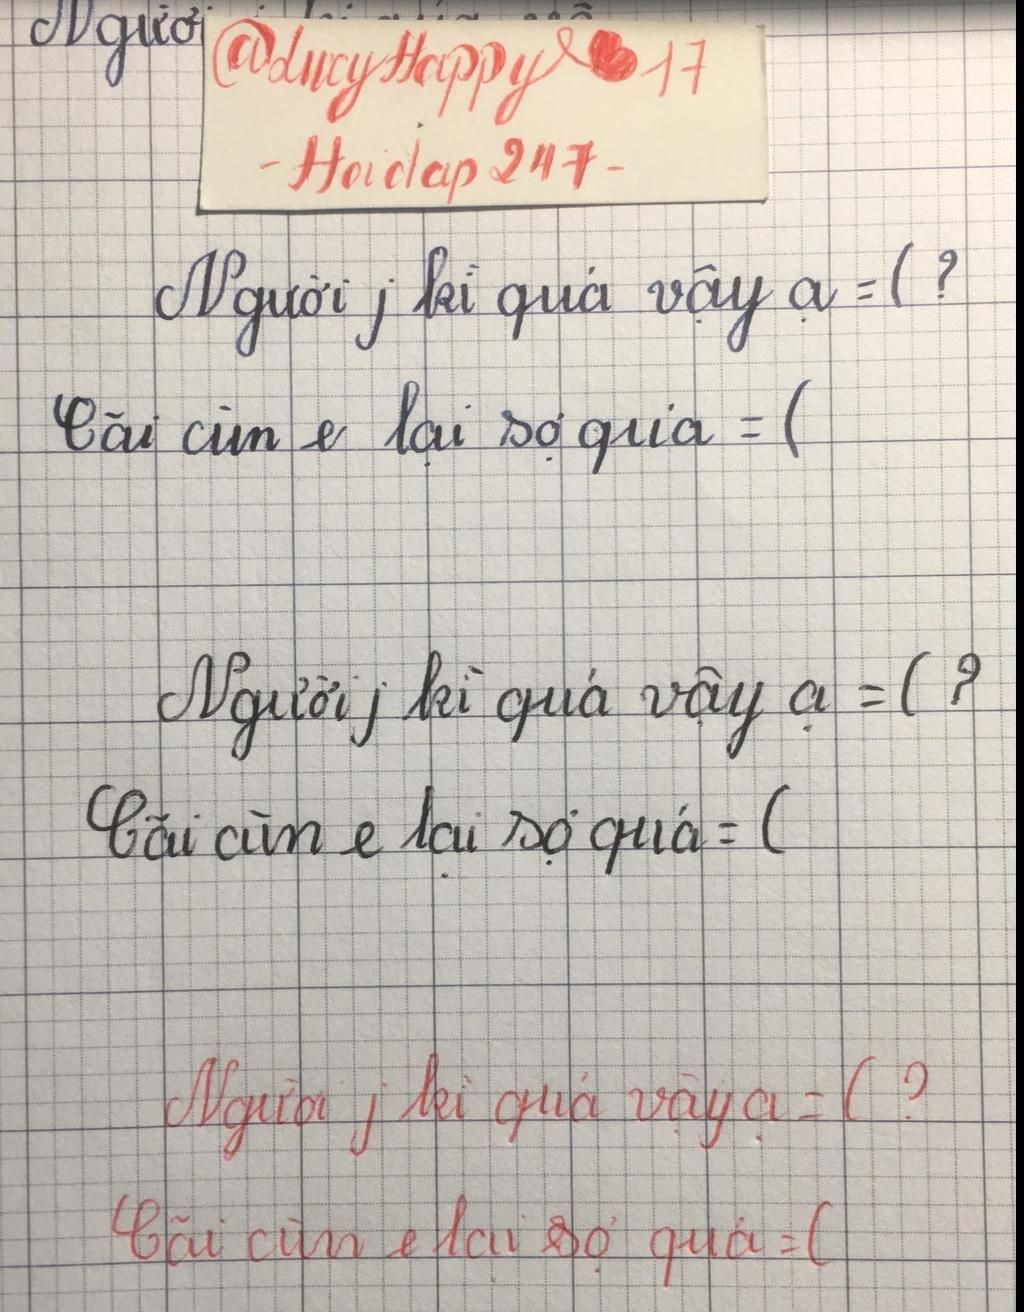 Người
@LucyHappy 17
- Hoidap247-
Người j kì quá vậy ạ =( ?
Cãi cùn e lại sợ quá =(
Người j kì quá vậy ạ =( ?
Cãi cùn e lại sợ quá =(
Người j kì quá vậy ạ =( ?
Cãi cùn e lại sợ quá =(